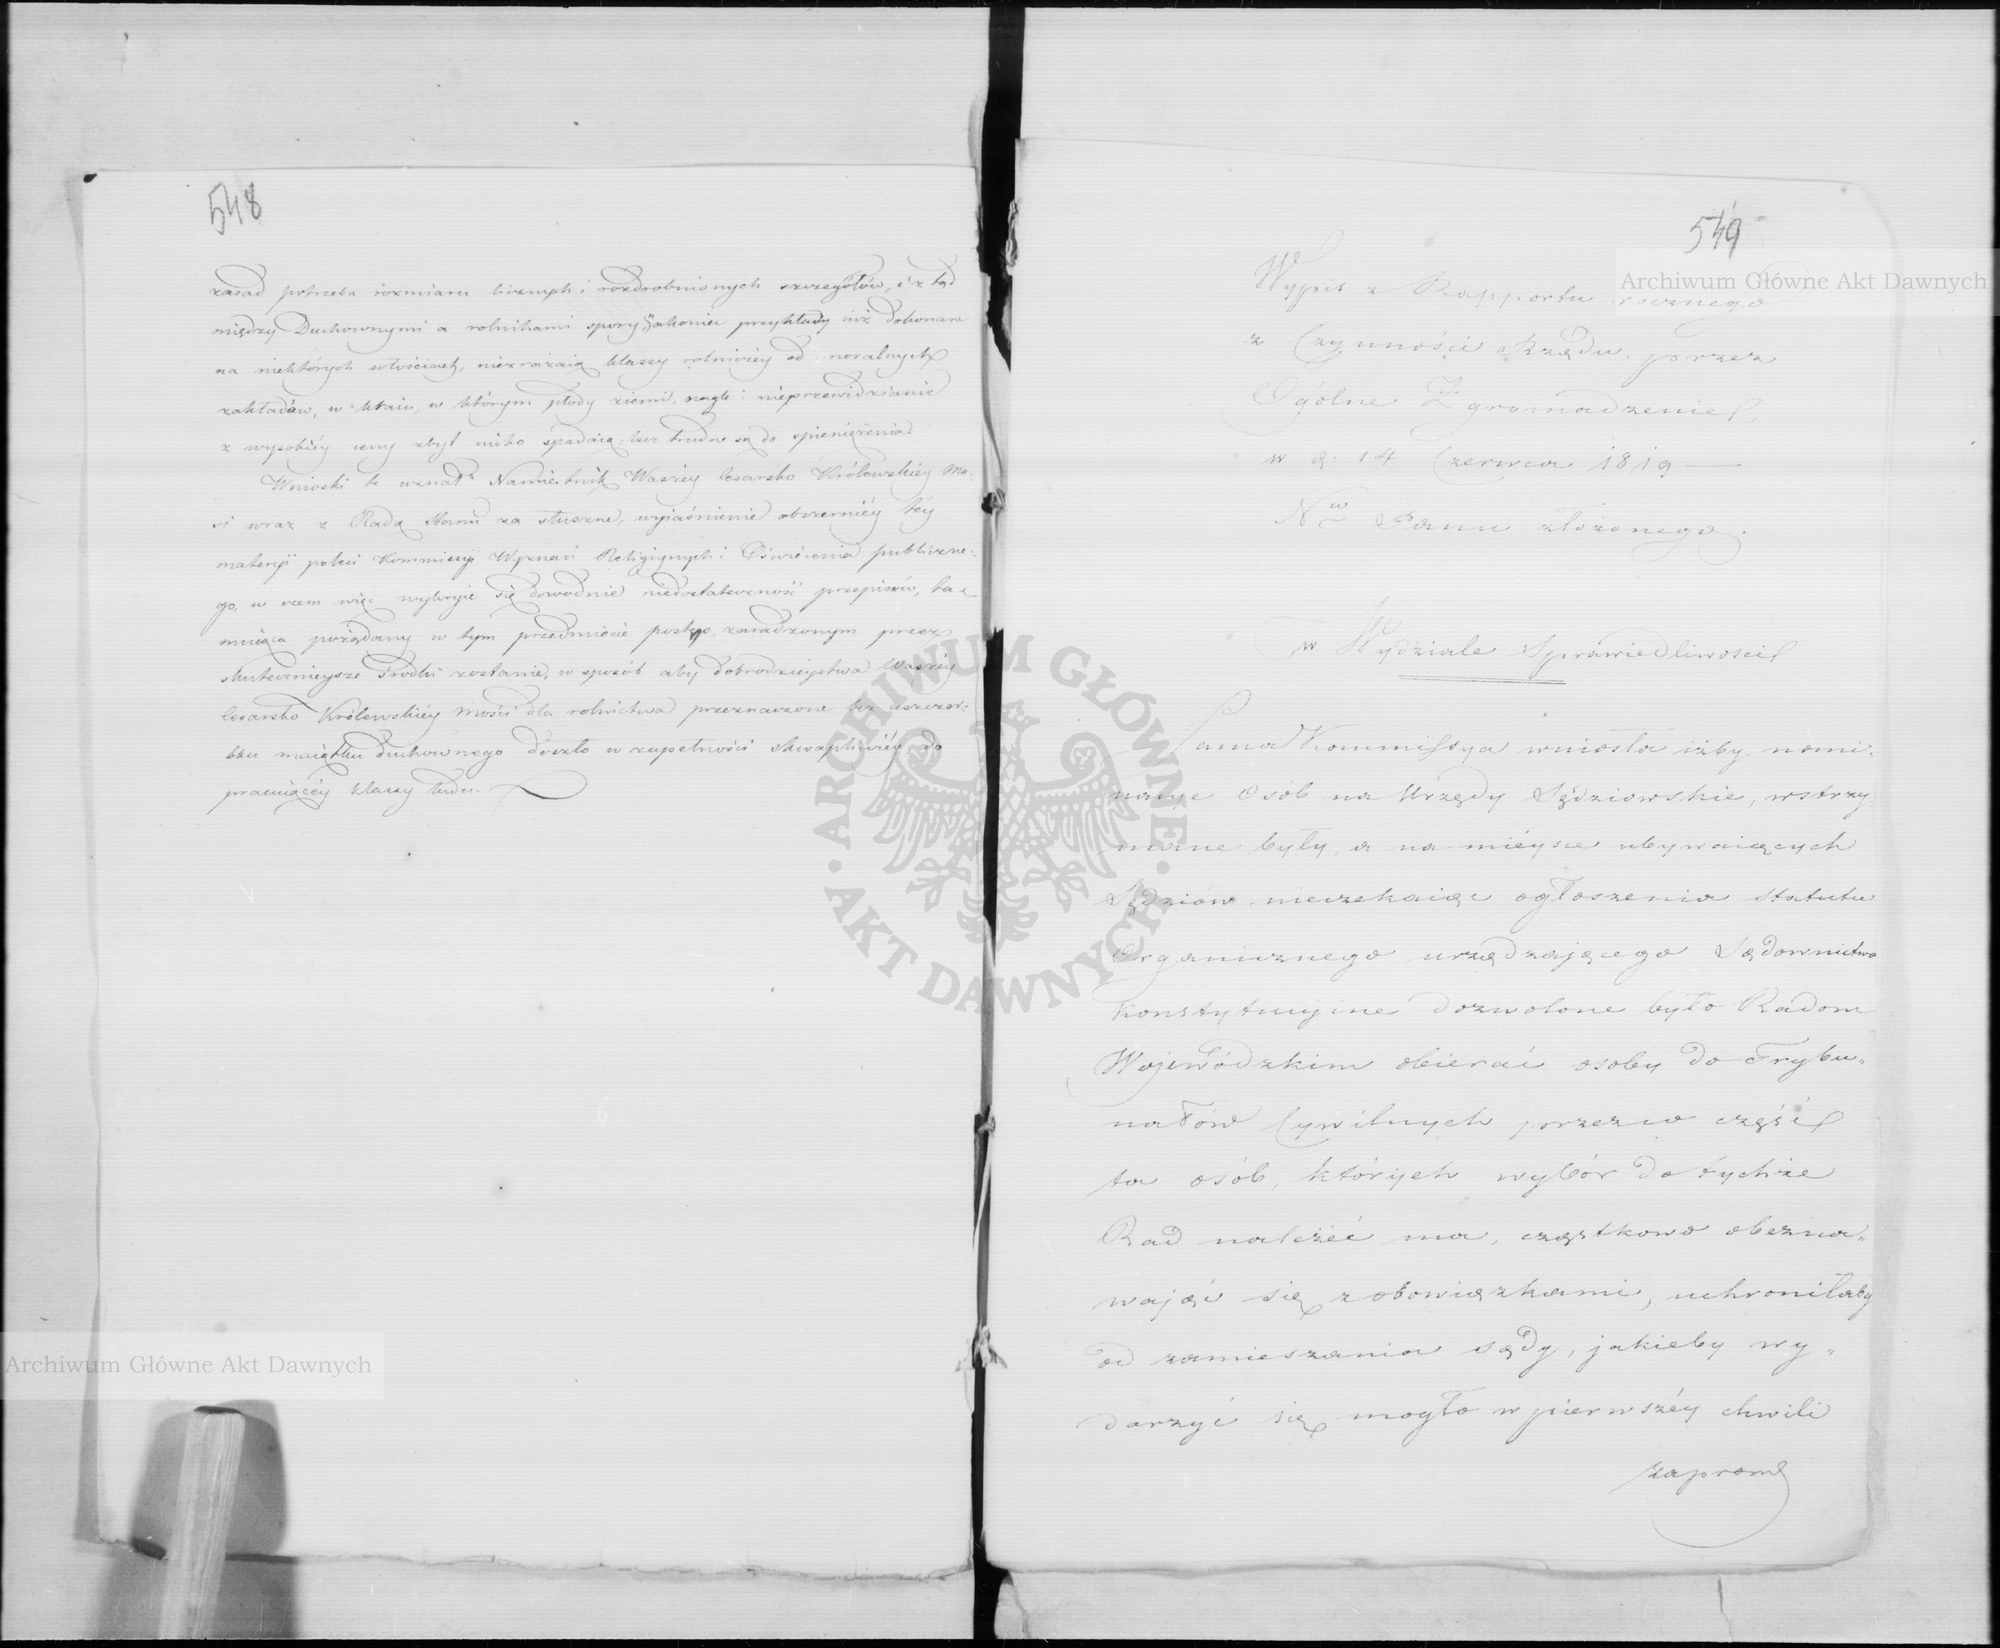 548
zasad potrzeba rozmiaru licznych i rozdrobnionych szczegółów, i z tąd
między Duchownymi a rolnikami spory, Nakoniec przykłady iuż dokonane
na niektórych włościach, niezrażaią klassy rolniczey od moralnych
zakładów, w kraiu, w którym płody ziemi, nagle i nieprzewidzianie
z wysokiéy ceny zbyt nisko spadaią, lecz trudne są do spieniężenia
Wnioski te uznał Namiestnik Waszéy Cesarsko Królewskiéy Mo-
ści wraz z Radą Stanu za słuszne, wyiaśnienie obszerniéy téy
materyi poleci Kommissyi Wyznań Religiynych i Oświecenia publiczne-
go, w czem więc wykryie się dowodnie niedostateczność przepisów, ta-
muiąca pożądany w tym przedmiocie postęp, zaradzonym przez
skutecznieysze środki zostanie, w sposób aby dobrodzieystwa Waszéy
Cesarsko Królewskiéy Mości dla rolnictwa przeznaczone bez uszczer-
bku maiątku duchownego doszło w zupełności skwapliwiéy do
pracuiącéy klassy ludu.
549
Wypis z Rapportu rocznego
z Czynności Rządu, przez
Ogólne Zgromadzenie
w d: 14 Czerwca 1819
N. Panu złożonego.
w Wydziale Sprawiedliwości
Sama Kommissya wniosła iżby nomi-
nacye Osób na Urzędy Sędziowskie, wstrzy
mane były, a na miéysce ubywaiących
Sędziów nieczekaiąc ogłoszenia Statutu
Organicznego urządzającego Sądownictwo
Konstytucyine dozwolone było Radom
Wojewódzkim obierać osoby do Trybu-
nałów Cywilnych przezco część
ta osób, których wybór do tychże
Rad należeć ma, cząstkowo obezna-
wając się z obowiązkami, uchroniłaby
od zamieszania sądy, jakieby wy-
darzyć się mogło w pierwszéy chwili
zaprow
Archiwum Główne Akt Dawnych
Archiwum Główne Akt Dawnych
ARCHIWUM GŁÓWNE · AKT DAWNYCH ·